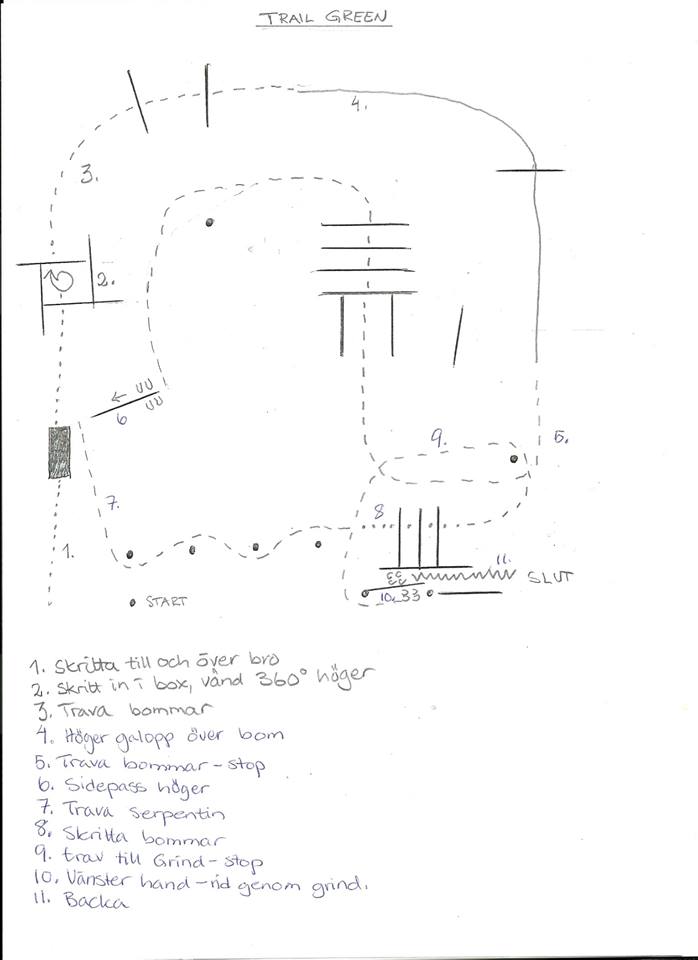 TRAIL GREEN
4.
3.
2.
6
9.
5.
7.
8
1.
11.
SLUT
10.
START
1. Skritta till och över bro
2. Skritt in i box, vänd 360° höger
3. Trava bommar
4. Höger galopp över bom
5. Trava bommar - stop
6. Sidepass höger
7. Trava Serpentin
8. Skritta bommar
9. trav till Grind - stop
10. Vänster hand - rid genom grind.
11. Backa